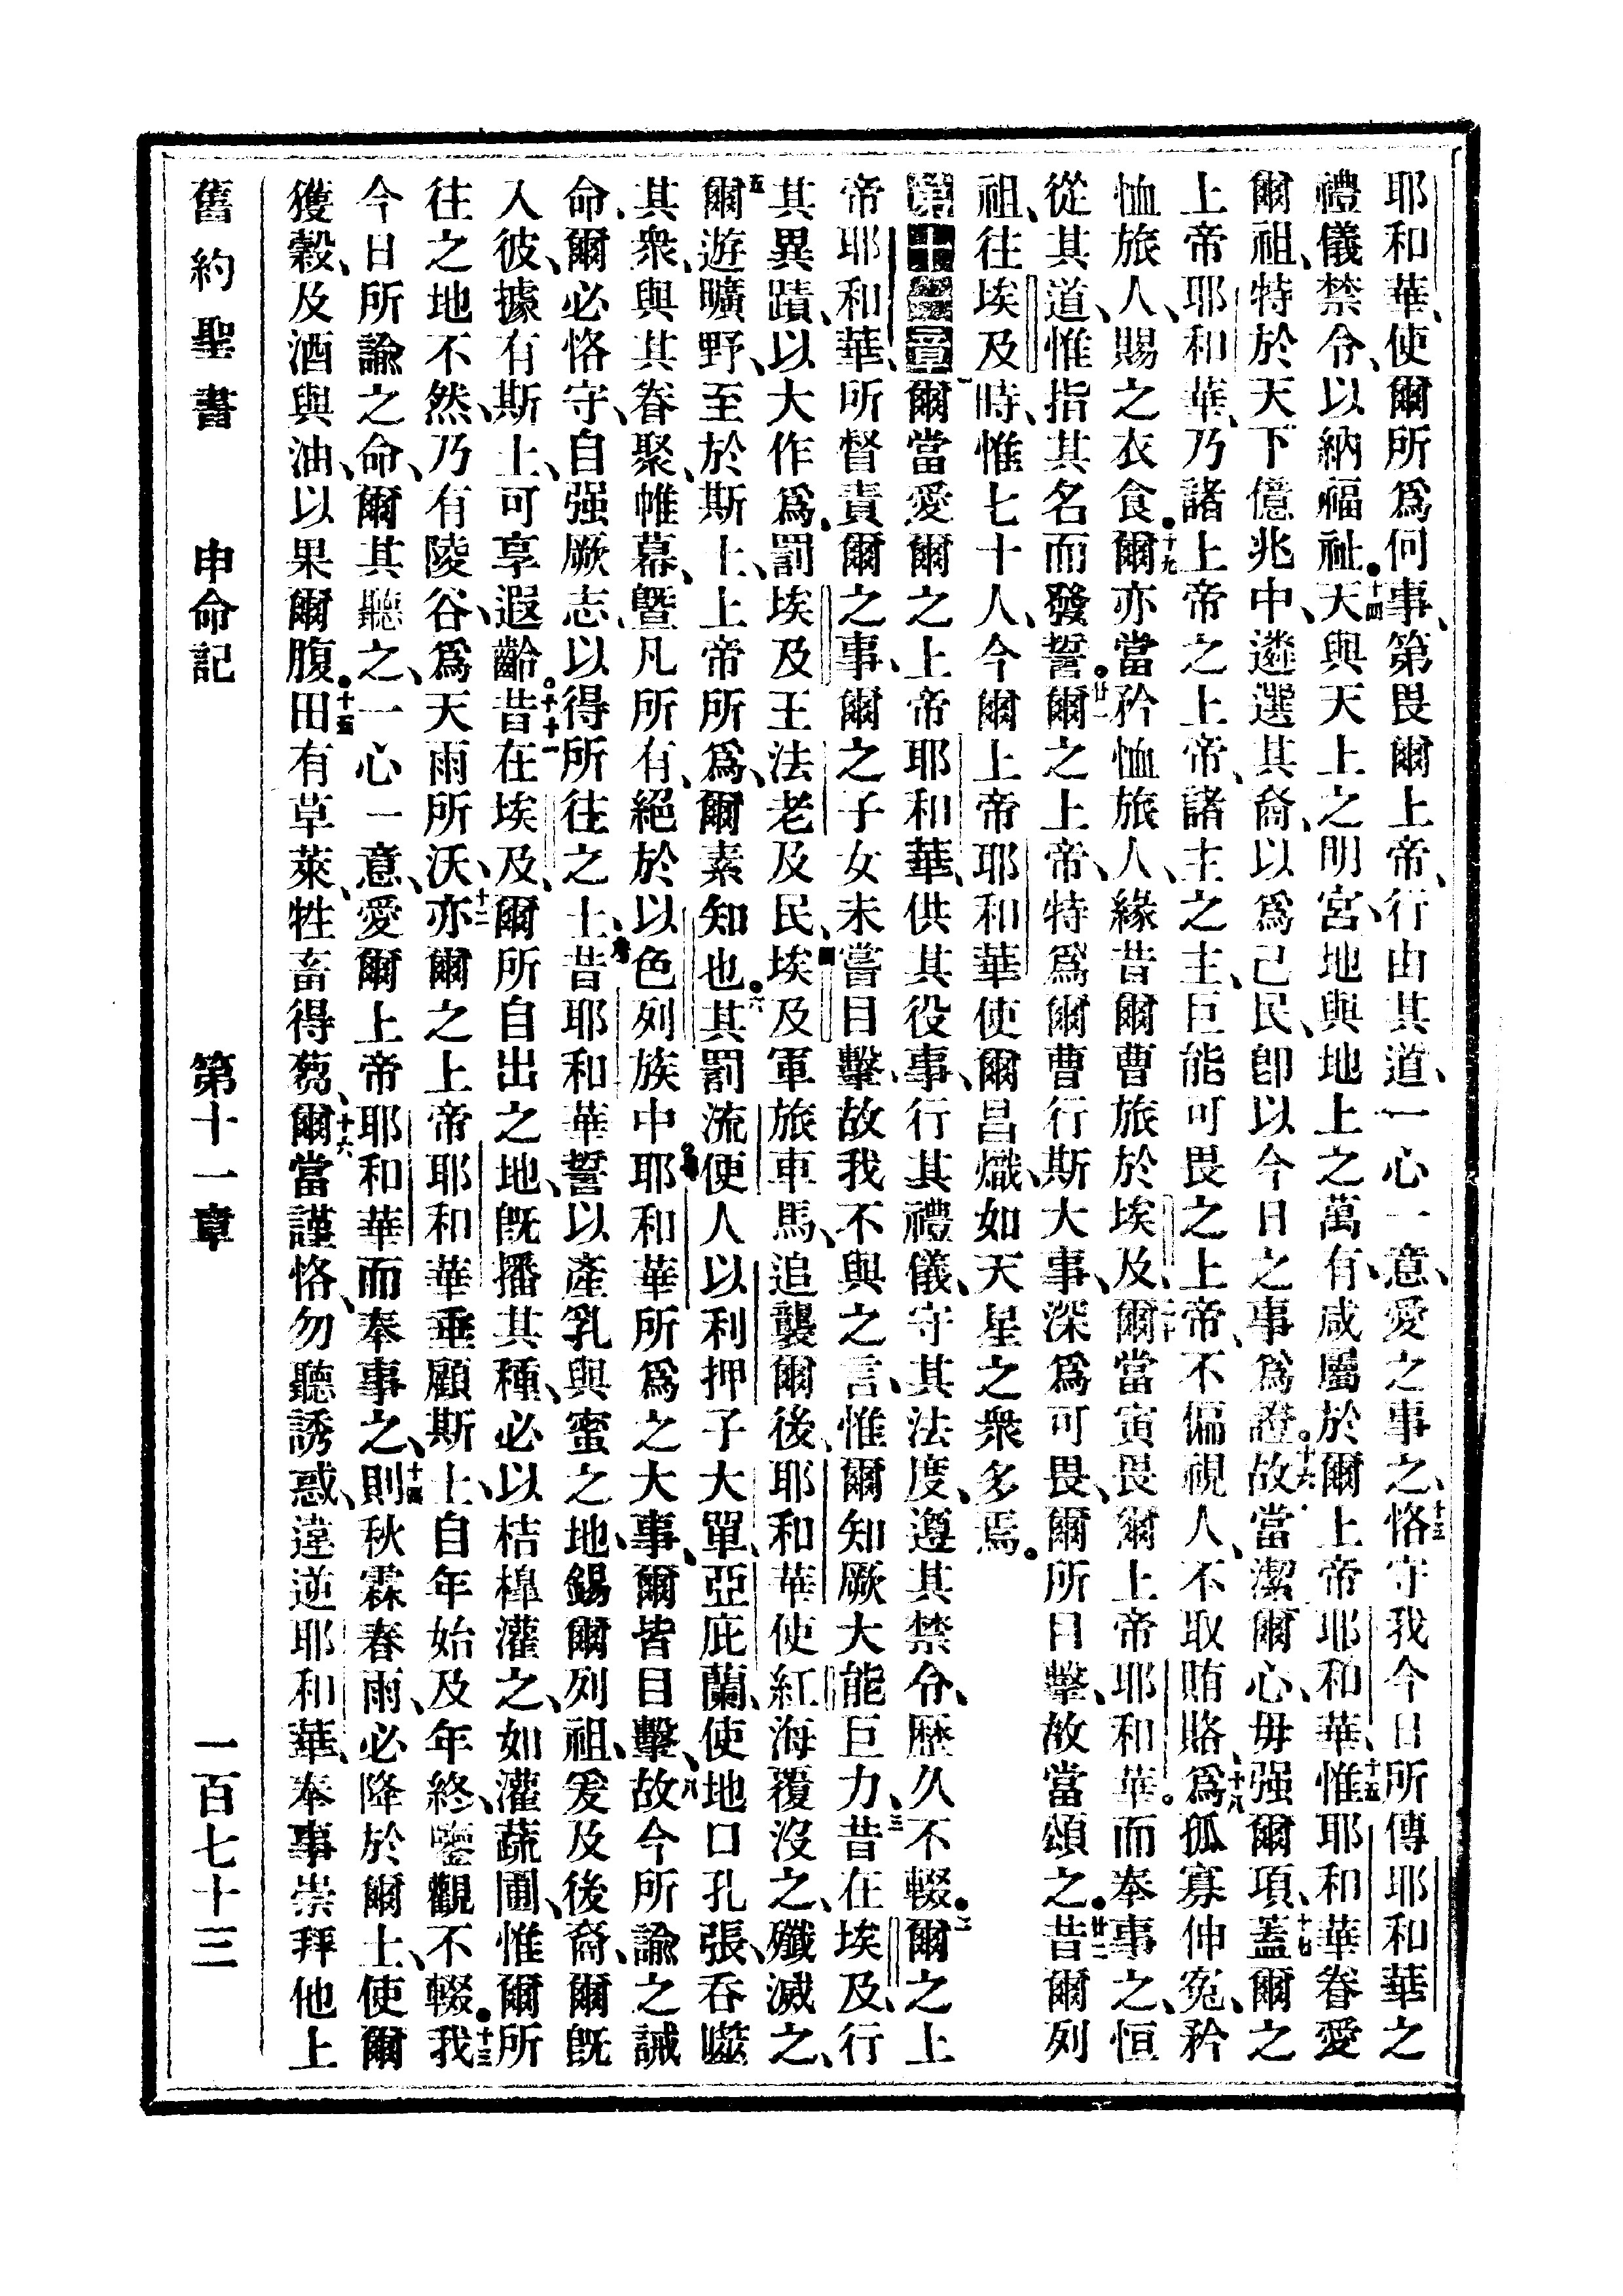 耶和華、使爾所爲何事、第畏爾上帝、行由其道、一心一意、愛之事之、十三恪守我今日所傳耶和華之
禮儀禁令、以納福祉。十四天與天上之明宮、地與地上之萬有、咸屬於爾上帝耶和華、十五惟耶和華眷愛
爾祖、特於天下億兆中、遴選其裔、以爲己民、卽以今日之事爲證。十六故當潔爾心、毋强爾項、十七蓋爾之
上帝耶和華、乃諸上帝之上帝、諸主之主、巨能可畏之上帝、不偏視人、不取賄賂、十八爲孤寡伸寃、矜
恤旅人、賜之衣食。十九爾亦當矜恤旅人、緣昔爾曹旅於埃及、二十爾當寅畏爾上帝耶和華。而奉事之、恒
從其道、惟指其名而發誓。廿一爾之上帝、特爲爾曹行斯大事、深爲可畏、爾所目擊、故當頌之。廿二昔爾列
祖、往埃及時、惟七十人、今爾上帝耶和華使爾昌熾、如天星之衆多焉。
第十一章 一爾當愛爾之上帝耶和華、供其役事、行其禮儀、守其法度、遵其禁令、歷久不輟。二爾之上
帝耶和華、所督責爾之事、爾之子女未嘗目擊、故我不與之言、惟爾知厥大能巨力、三昔在埃及、行
其異蹟、以大作爲、罰埃及王法老及民、四埃及軍旅車馬、追襲爾後、耶和華使紅海覆沒之、殲滅之、
五爾遊曠野、至於斯土、上帝所爲、爾素知也。六其罰流便人以利押子大單、亞庇蘭、使地口孔張、吞噬
其衆、與其眷聚、帷幕、曁凡所有、絕於以色列族中、七耶和華所爲之大事、爾皆目擊、八故今所諭之誡
命、爾必恪守、自强厥志、以得所往之土、九昔耶和華誓以產乳與蜜之地、錫爾列祖、爰及後裔、爾旣
入彼、據有斯土、可享遐齡。十十一昔在埃及、爾所自出之地、旣播其種、必以桔槹灌之、如灌蔬圃、惟爾所
往之地不然、乃有陵谷、爲天雨所沃、十二亦爾之上帝耶和華垂顧斯土、自年始及年終、鑒觀不輟。十三我
今日所諭之命、爾其聽之、一心一意、愛爾上帝耶和華而奉事之、十四則秋霖春雨、必降於爾土、使爾
獲穀、及酒與油、以果爾腹。十五田有草萊、牲畜得芻、十六爾當謹恪、勿聽誘惑、違逆耶和華、奉事崇拜他上
舊約聖書 申命記 第十一章 一百七十三